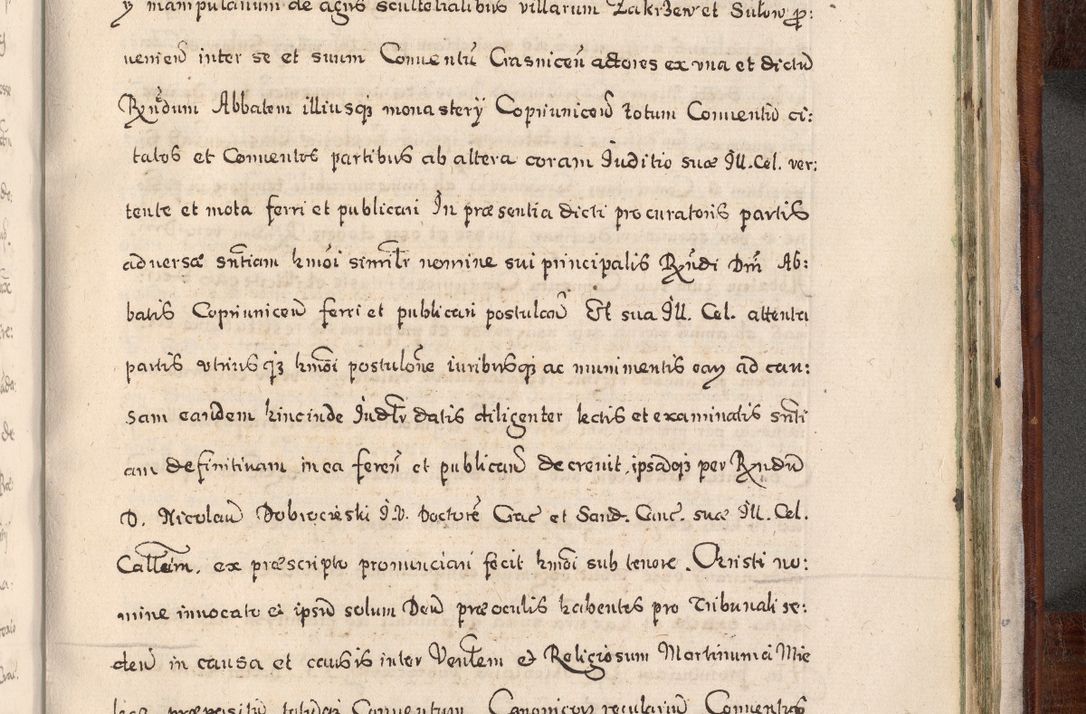 y manipularum de agris scultetialibus villarum Zakrzew et Sułow p̄ro:
venien̄ inter se et suum Conventū Crasnicen̄ actores ex vna et dictū
Rn̄dum Abbatem illiusq̄ monastery Coprivnicen̄ totum Conventū ci:
tatos et Conventos partibus ab altera coram Iuditio suæ Ill. Cel. ver:
tente et mota ferri et publicari In præsentia dicti procuratoris partis
adversæ sn̄tiam hmōi similr̄ nomine sui principalis Rn̄di Dn̄i Ab:
batis Coprivnicen̄ ferri et publicari postulan̄ Et sua Ill. Cel. attenta
partis vtriusq̄ hmōi postulōne iuribusq̄ ac munimentis eaꝝ ad cau:
sam eandem hincinde Iudlr̄ datis diligenter lectis et examinatis sn̄ti
am definitivam in ea feren̄ et publican̄ decrevit, ipsāq̄ per Rn̄dū
D. Nicolaū Dobrocieski I.V. Doctorē Crac et Sand. Canc. suæ Ill. Cel.
Callem̄, ex præscripto pronunciari fecit hmōi sub tenore. Christi no:
mine invocato et ipsū solum Deū præ oculis habentes pro Tribunali se:
den̄ in causa et causis inter Ven̄lem et Religiosum Martinum à Mie
præpositū totumq̄ Conventum Canonicoꝝ regulariū Conventus